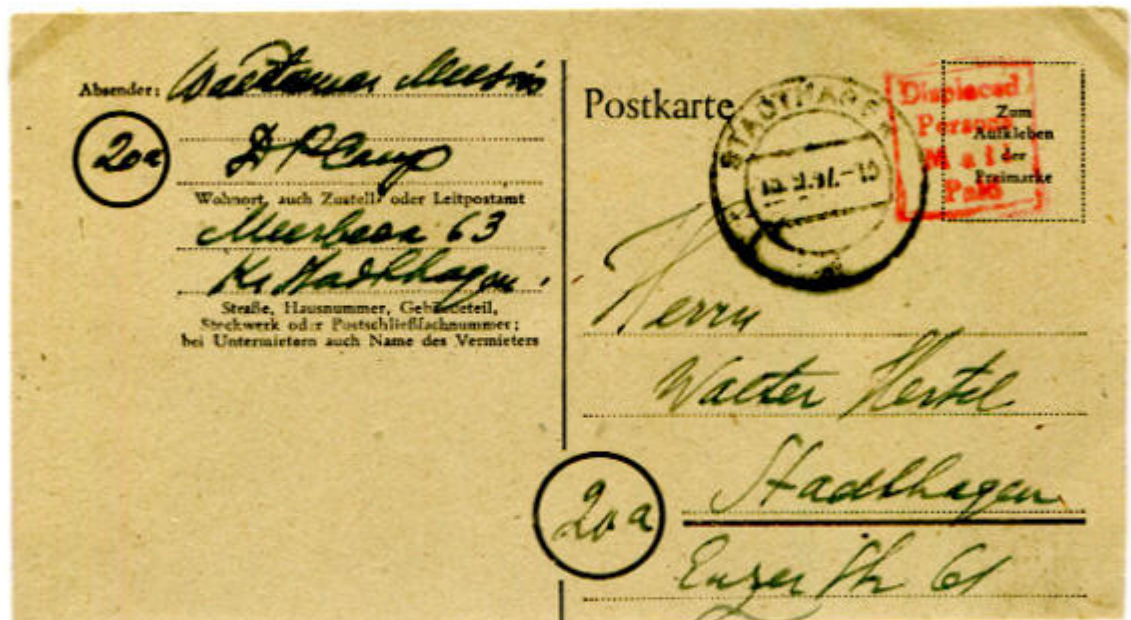 Absender: Waldemar
20a
D P Camp
Wohnort, auch Zustell- oder Leitpostamt
Meerbeck 63
Kr. Stadthagen.
Straße, Hausnummer, Gebäudeteil,
Stockwerk oder Postschließfachnummer;
bei Untermietern auch Name des Vermieters
Postkarte
STADTHAGEN
Displaced
Persons
Mail
Paid
Zum
Aufkleben
der
Freimarke
Herrn
Walter Hertel
20a
Stadthagen
Enzer Str 61